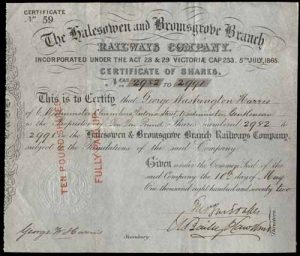 CERTIFICATE
No. 59
The Halesowen and Bromsgrove Branch
RAILWAYS COMPANY.
INCORPORATED UNDER THE ACT 28 & 29 VICTORIÆ CAP 253. 5TH JULY, 1865.
CERTIFICATE OF SHARES.
2982 TO 2991
This is to Certify that George Washington Harris
of Westminster Chambers Victoria Street Westminster Gentleman
is the Proprietor of Ten Ten Pound Shares numbered 2982 to
2991 of the Halesowen & Bromsgrove Branch Railways Company,
subject to the Regulations of the said Company.
Given under the Common Seal of the
said Company the 10th day of May
One thousand eight hundred and seventy two
TEN POUND SHARE
FULLY PAID UP
George W Harris
Secretary
Directors